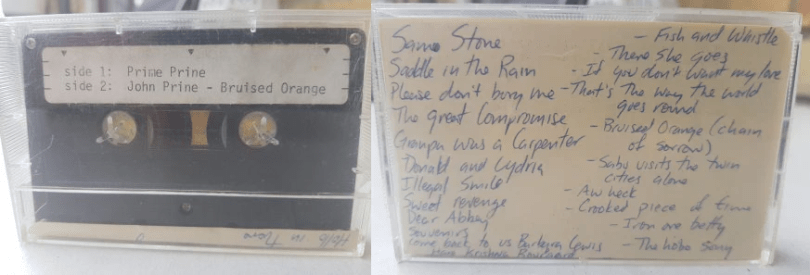 side 1: Prime Prine
side 2: John Prine - Bruised Orange
Sams Stone
Saddle in the Rain
Please don't bury me
The great Compromise
Grampa was a Carpenter
Donald and Lydia
Illegal Smile
Sweet revenge
Dear Abbey
Souvenirs
Come back to us Barbara Lewis
Hare Krishna Beauregard
- Fish and Whistle
- There She goes
- If you don't want my love
- That's the way the world
goes round
- Bruised Orange (chain
of sorrow)
- Sabu visits the twin
cities alone
- Aw heck
- Crooked piece of time
- Iron ore betty
- The hobo song